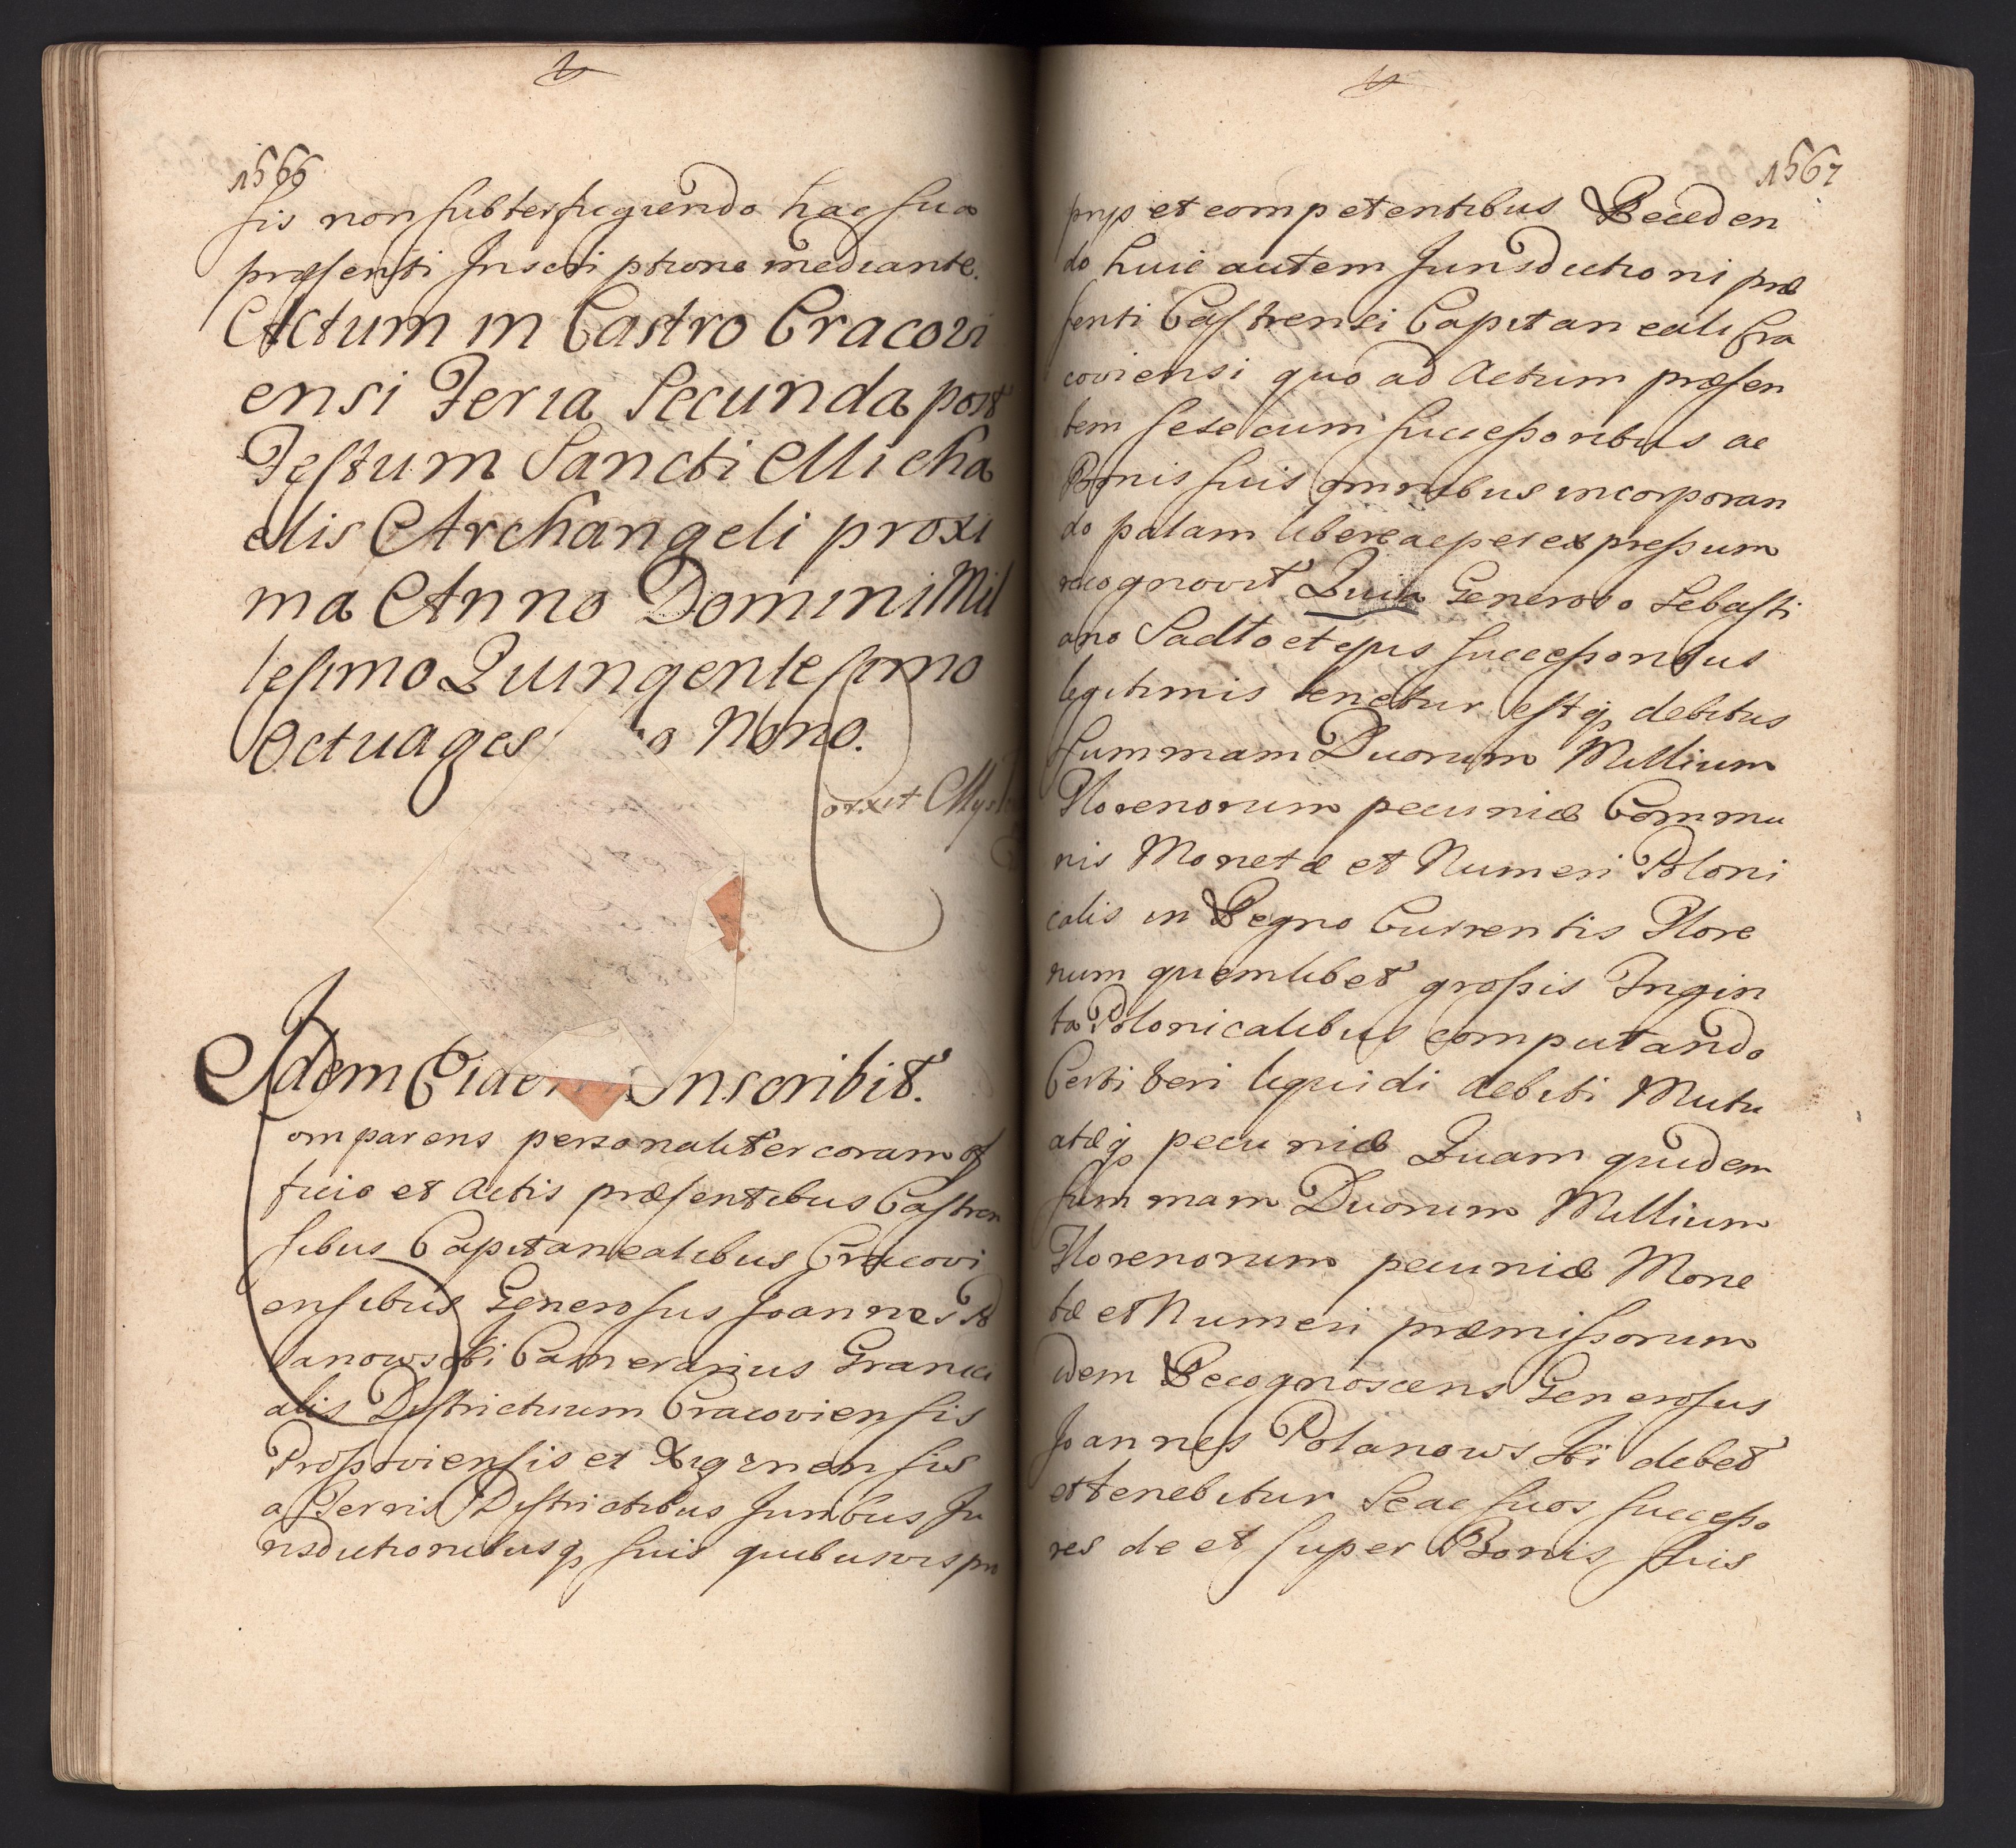 1566
sis non subterfugiendo hac sua
præsenti Inscriptione mediante.
Actum in Castro Cracovi
ensi Feria Secunda post
Festum Sancti Micha
elis Archangeli proxi
ma Anno Domini Mil
lesimo Quingentesimo
Octuages o Nono.
Idem Eidem Inscribit.
Comparens personaliter coram of
ficio et Actis præsentibus Castren
sibus Capitanealibus Cracovi
ensibus Generosus Joannes Po
lanowski Camerarius Granici
alis Districtuum Cracoviensis
Prossoviensis et Xignensis
a Terris Districtibus Juribus Ju
risdictionibusq suis quibusvis pro
1567
prijs et competentibus Receden
do huic autem Jurisdictioni præ
senti Castrensi Capitaneali Cra
coviensi quo ad Actum præsen
tem sese cum successoribus ac
Bonis suis omnibus incorporan
do palam libere ac per expressum
recognovit Quia Generoso Sebasti
ano Sadlo et ejus successoribus
legitimis tenetur estq debitus
summam Duorum Millium
Florenorum pecuniæ Commu
nis Monetæ et Numeri Poloni
calis in Regno Currentis Flore
num quemlibet grossis Trigin
ta Polonicalibus computando
Certi veri liquidi debiti Mutu
atæq pecuniæ Quam quidem
summam Duorum Millium
Florenorum pecuniæ Mone
tæ et Numeri præmissorum
idem Recognoscens Generosus
Joannes Polanowski debet
et tenebitur Se ac suos successo
res de et super Bonis suis